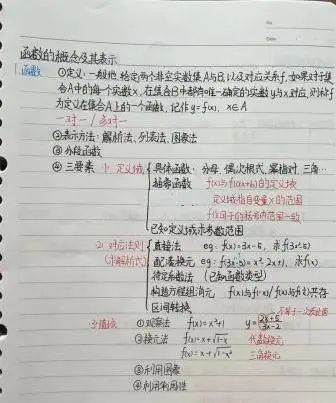 函数的概念及其表示
1.函数 ①定义:一般地,给定两个非空实数集A与B,以及对应关系f,如果对于集
合A中的每一个实数x,在集合B中都有唯一确定的实数y与x对应,则称f
为定义在集合A上的一个函数,记作y=f(x), x∈A
一对一/多对一
②表示方法:解析法、列表法、图象法
③分段函数
④三要素 1°定义域 具体函数:分母、偶次根式、幂指对、三角…
抽象函数 f(x)与f(ax+b)的定义域
定义域指自变量x的范围
f作用于的括号内范围一致
已知定义域求参数范围
2°对应法则 直接法 eg: f(x)=3x-5, 求f(3x-5)
(求解析式) 配凑换元 eg: f(3x-5)=x²-2x+1, 求f(x)
待定系数法 (已知函数类型)
构造方程组消元 f(x)与f(-x)/f(x)与f(1/x)共存
区间转换
3°值域 ①观察法 f(x)=x²+1 y=
②换元法 f(x)=x+√1-x 代数换元
f(x)=x+√1-x² 三角换元
③利用图象
④利用单调性